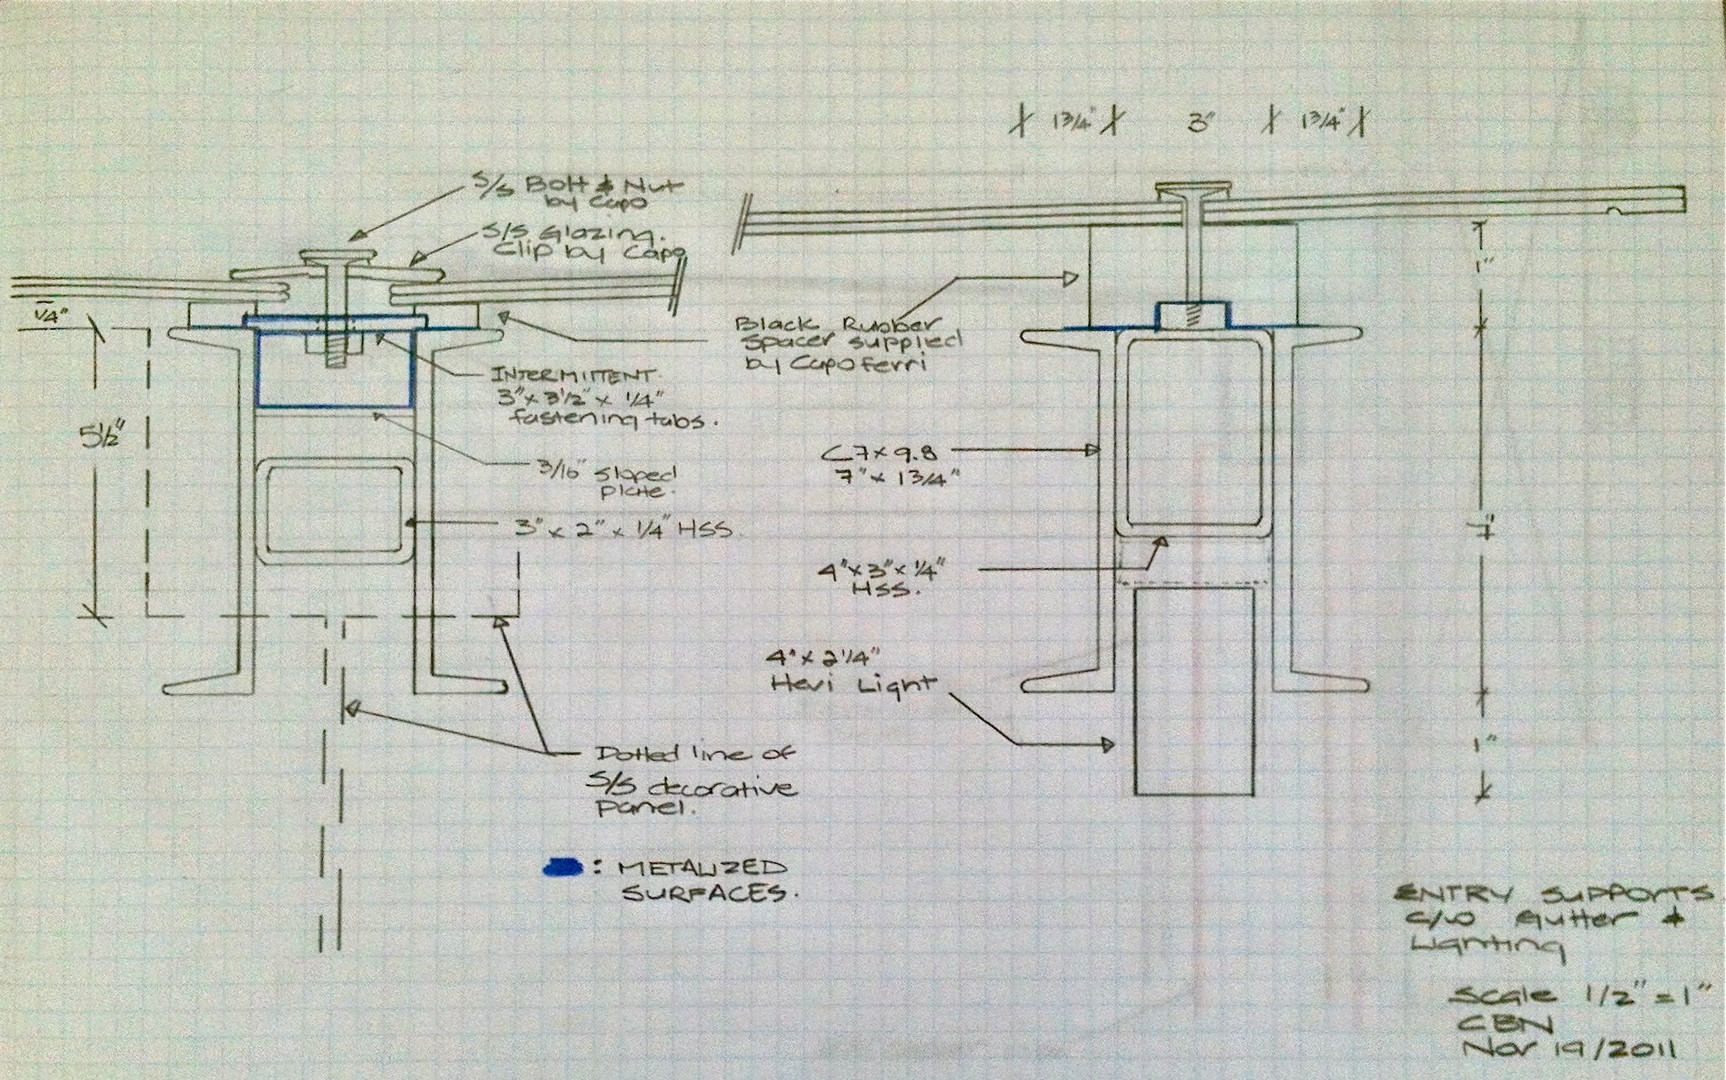 1 3/4" 3" 1 3/4"
S/S Bolt & Nut
by Capo
S/S Glazing.
Clip by Capo
1/4"
1"
Black Rubber
Spacer supplied
by Capo Ferri
INTERMITTENT
3" x 3 1/2" x 1/4"
fastening tabs.
5 1/2"
3/16" sloped
plate.
C7 x 9.8
7" x 1 3/4"
3" x 2" x 1/4" HSS.
7"
4" x 3" x 1/4"
HSS.
4" x 2 1/4"
Hevi Light
1"
Dotted line of
S/S decorative
panel.
: METALIZED
SURFACES.
ENTRY SUPPORTS
C/W Gutter &
Lighting
Scale 1/2" = 1"
CBN
Nov 19/2011